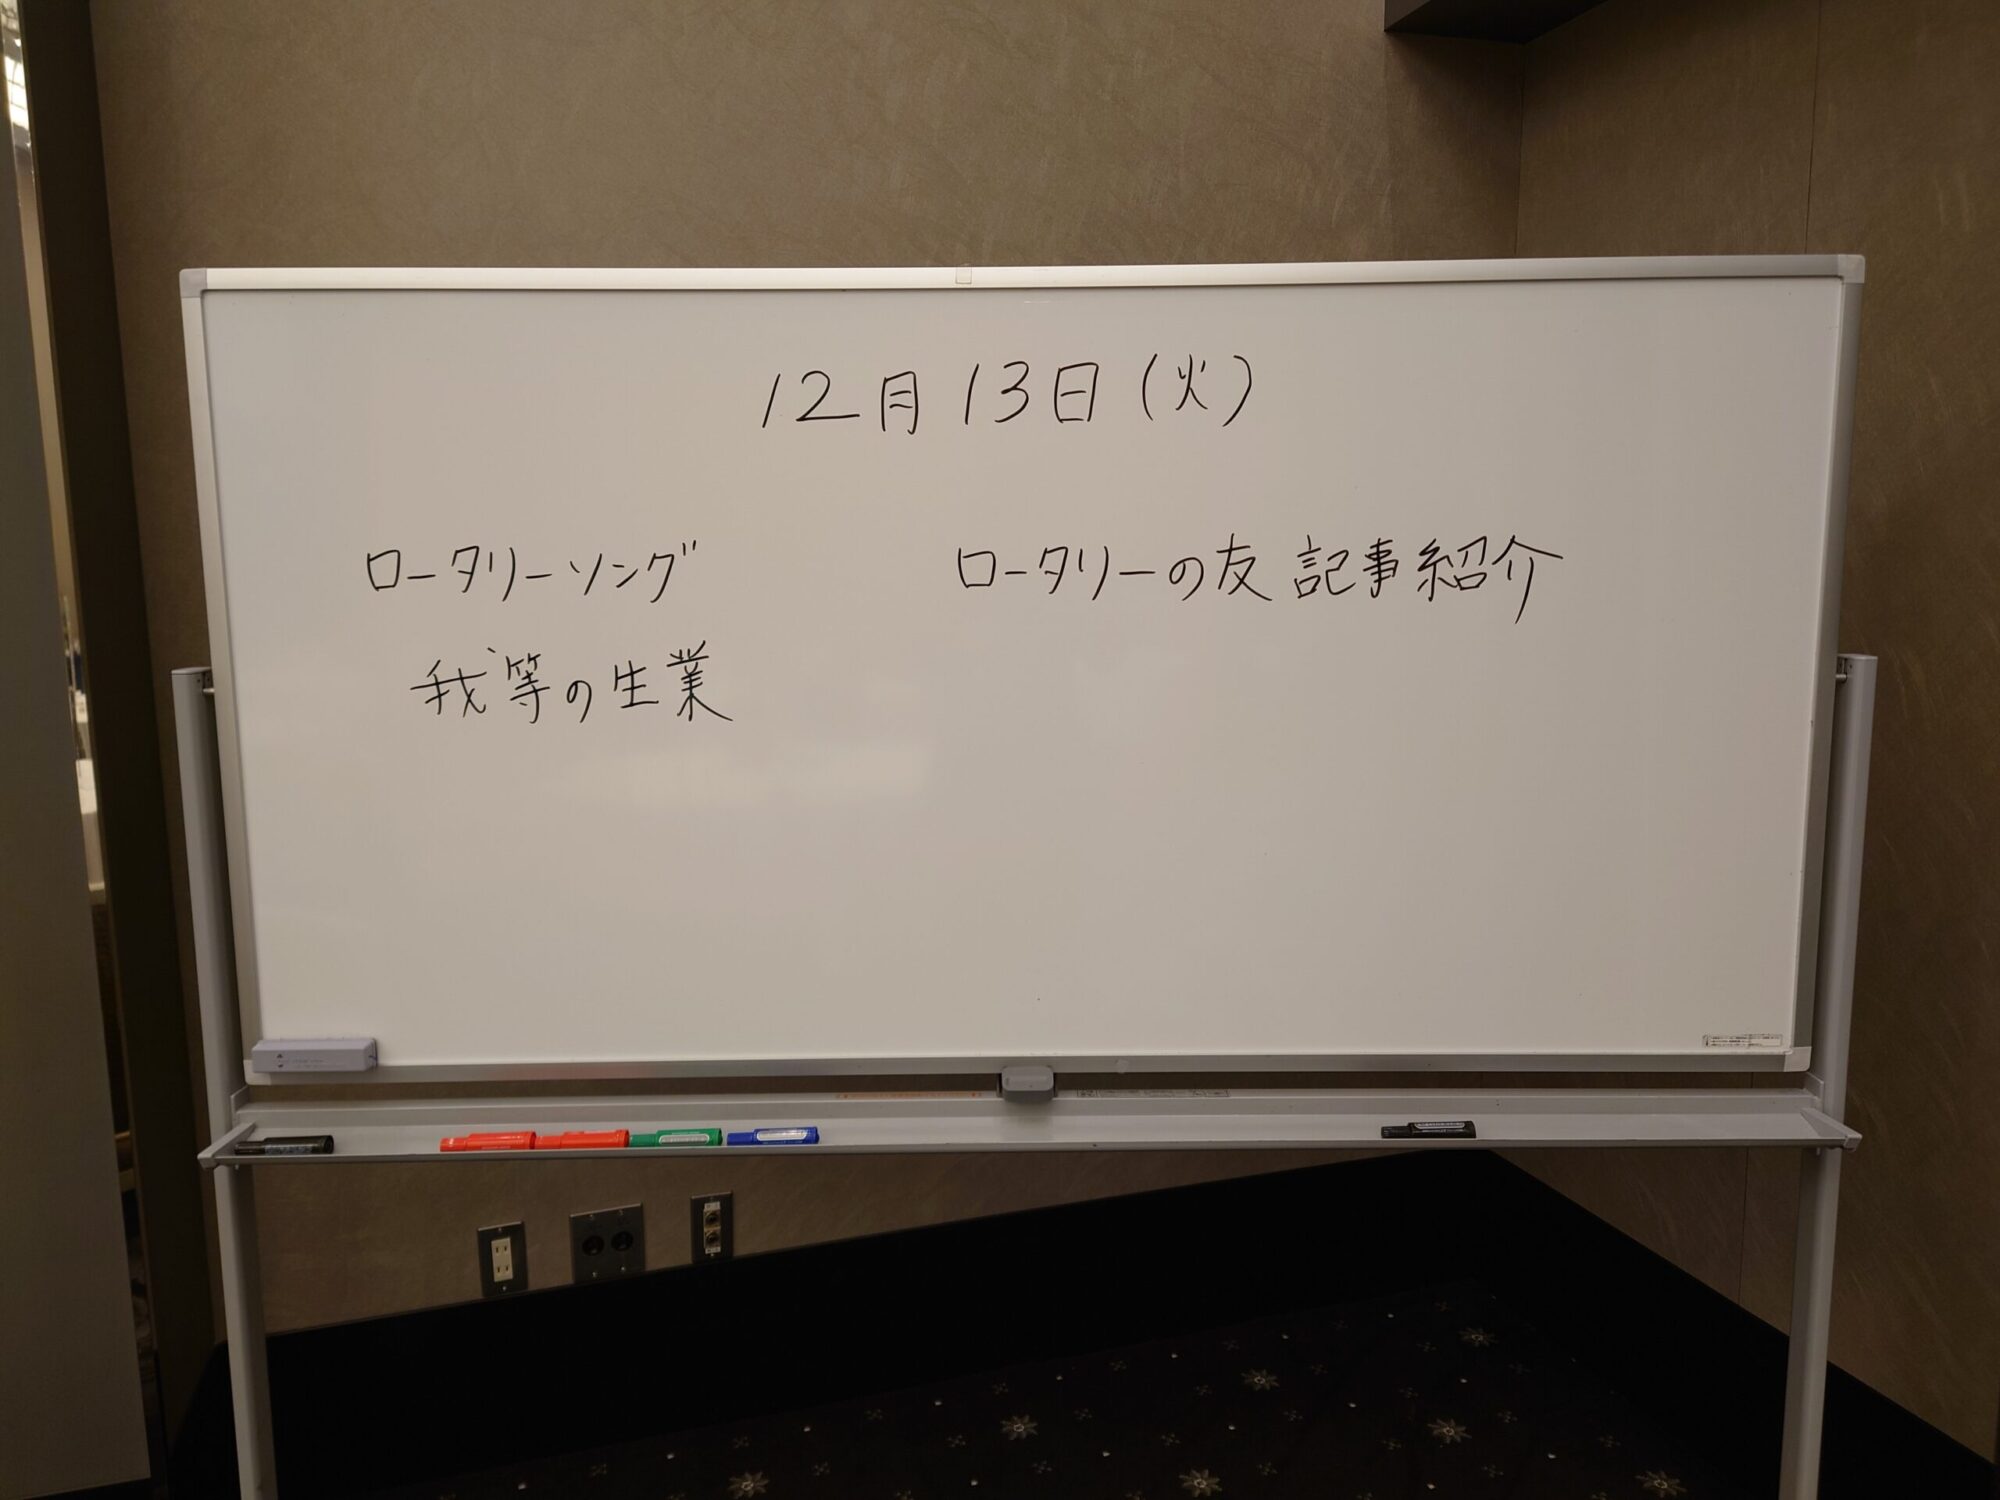 12月13日(火)
ロータリーソング
我等の生業
ロータリーの友 記事紹介